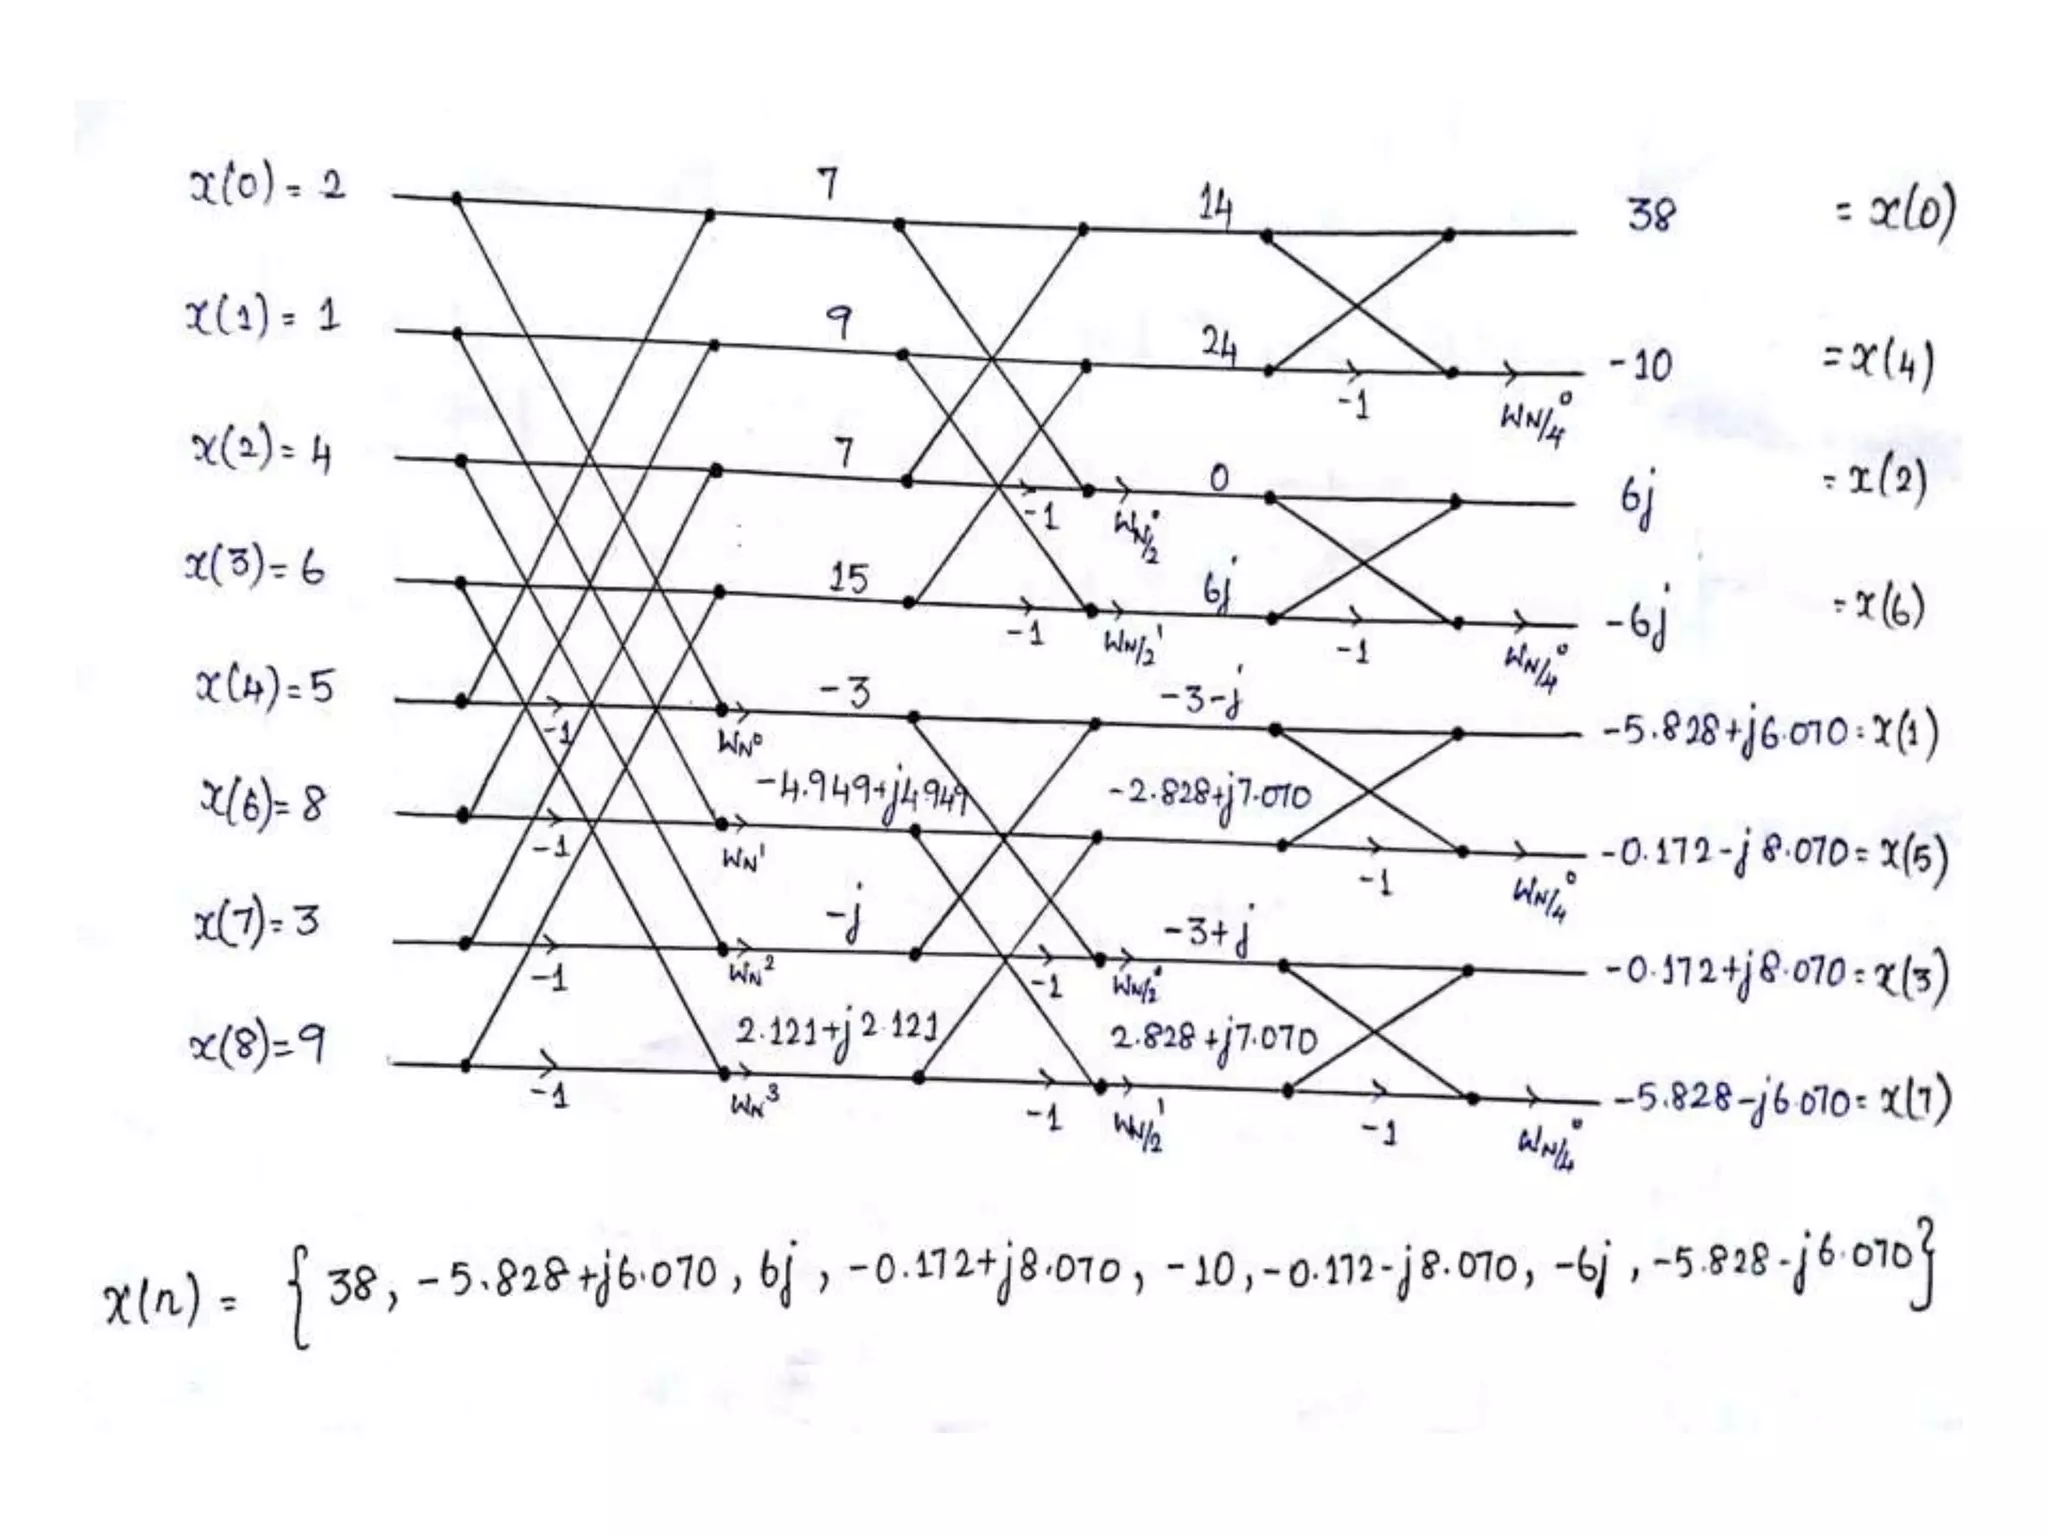 x(0) = 2 7 14 38 = x(0)
x(1) = 1 9 24 -10 = x(4)
-1 W_N/4^0
x(2) = 4 7 0 6j = x(2)
-1 W_N/2^0
x(3) = 6 15 6j -6j = x(6)
-1 W_N/2^1 -1 W_N/4^0
x(4) = 5 -3 -3-j -5.828+j6.070 = x(1)
-1 W_N^0
x(6) = 8 -4.949+j4.949 -2.828+j7.070 -0.172-j8.070 = x(5)
-1 W_N^1 -1 W_N/4^0
x(7) = 3 -j -3+j -0.172+j8.070 = x(3)
-1 W_N^2 -1 W_N/2^0
x(8) = 9 2.121+j2.121 2.828+j7.070 -5.828-j6.070 = x(7)
-1 W_N^3 -1 W_N/2^1 -1 W_N/4^0
x(n) = { 38, -5.828+j6.070, 6j, -0.172+j8.070, -10, -0.172-j8.070, -6j, -5.828-j6.070}